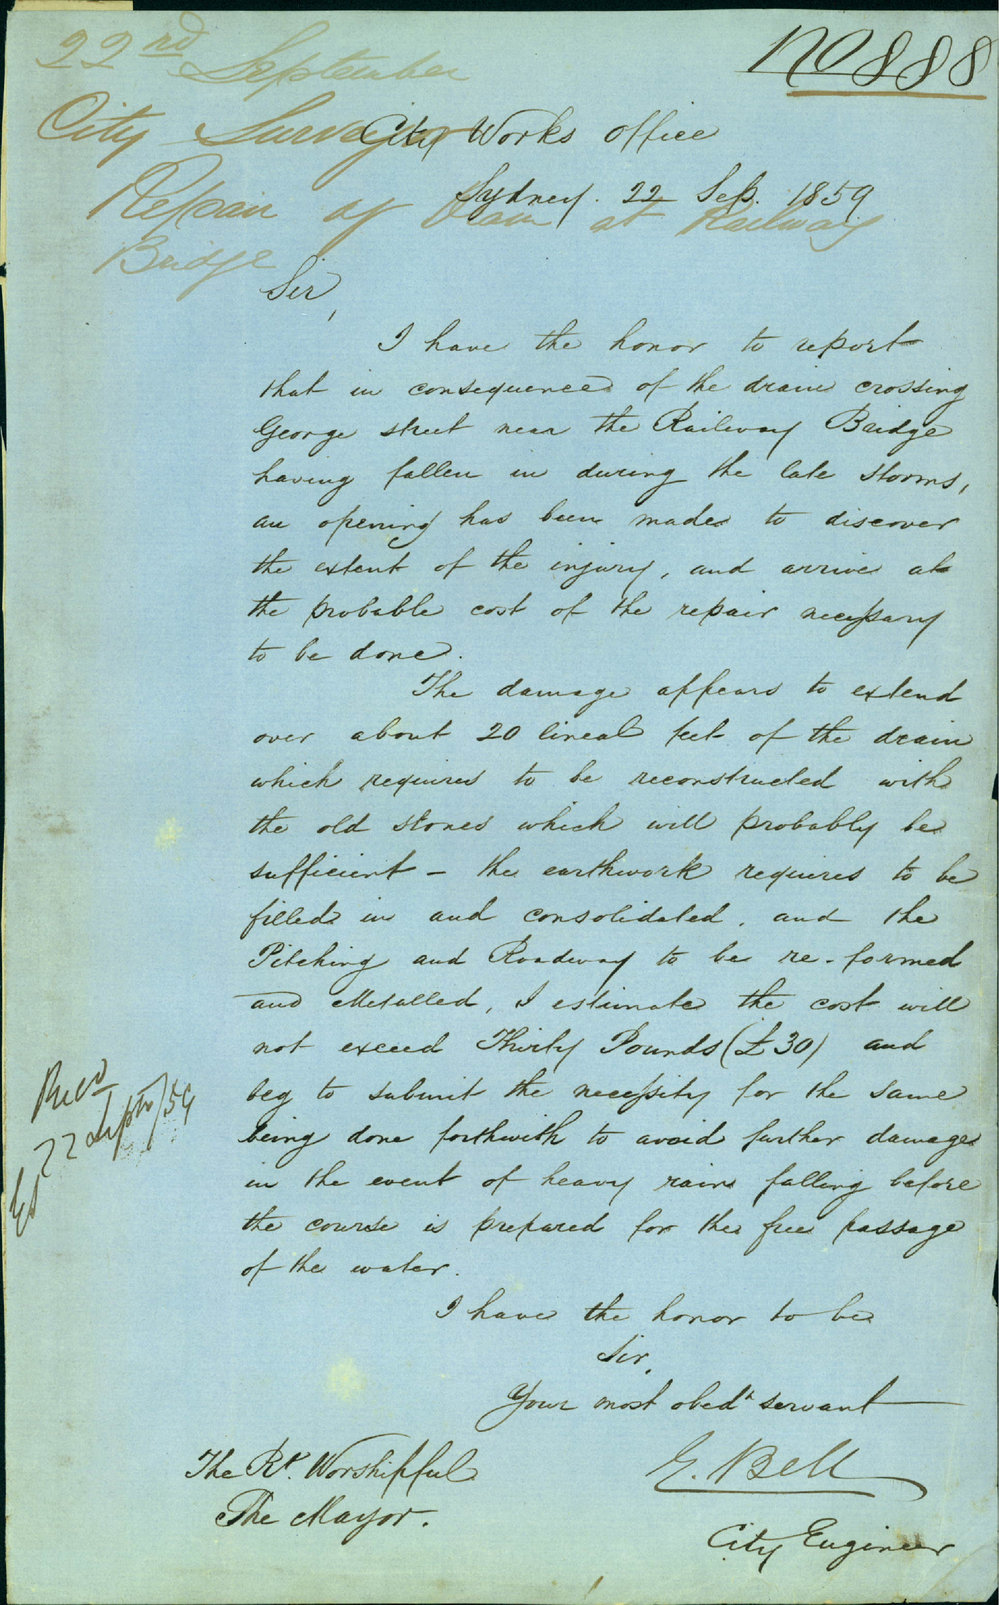 22nd September
No 888
City Surveyor
City Works Office
Sydney. 22 Sep. 1859
Repair of Drain at Railway
Bridge
Sir,
I have the honor to report
that in consequence of the drain crossing
George street near the Railway Bridge
having fallen in during the late storms,
an opening has been made to discover
the extent of the injury, and arrive at
the probable cost of the repair necessary
to be done.
The damage appears to extend
over about 20 lineal feet of the drain
which requires to be reconstructed with
the old stones which will probably be
sufficient - the earthwork requires to be
filled in and consolidated, and the
Pitching and Roadway to be re-formed
and Metalled, I estimate the cost will
not exceed Thirty Pounds (£30) and
beg to submit the necessity for the same
being done forthwith to avoid further damage
in the event of heavy rains falling before
the course is prepared for the free passage
of the water.
I have the honor to be
Sir,
Your most obedt servant
E. Bell
City Engineer
The Rt. Worshipful
The Mayor.
Recd
22 Septr/59